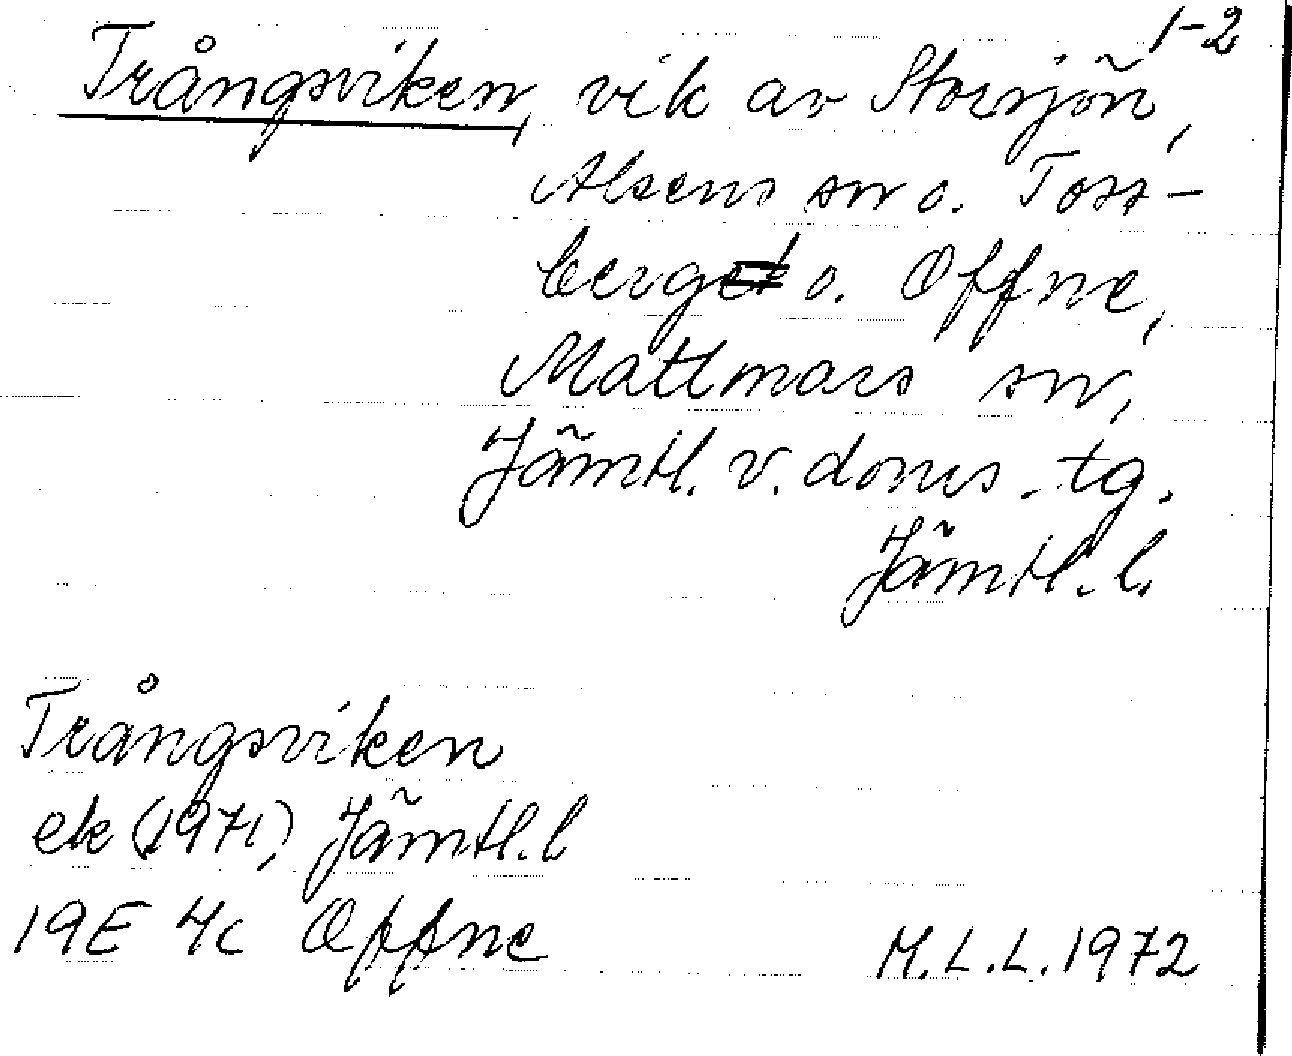 1-2
Trångsviken, vik av Storsjön,
Alsens sn o. Toss-
berg o. Offne,
Mattmars sn,
Jämtl. v. doms.-tg.
Jämtl. l.
Trångsviken
ek (1971), Jämtl. l
19E 4c Offne
M.L.L. 1972